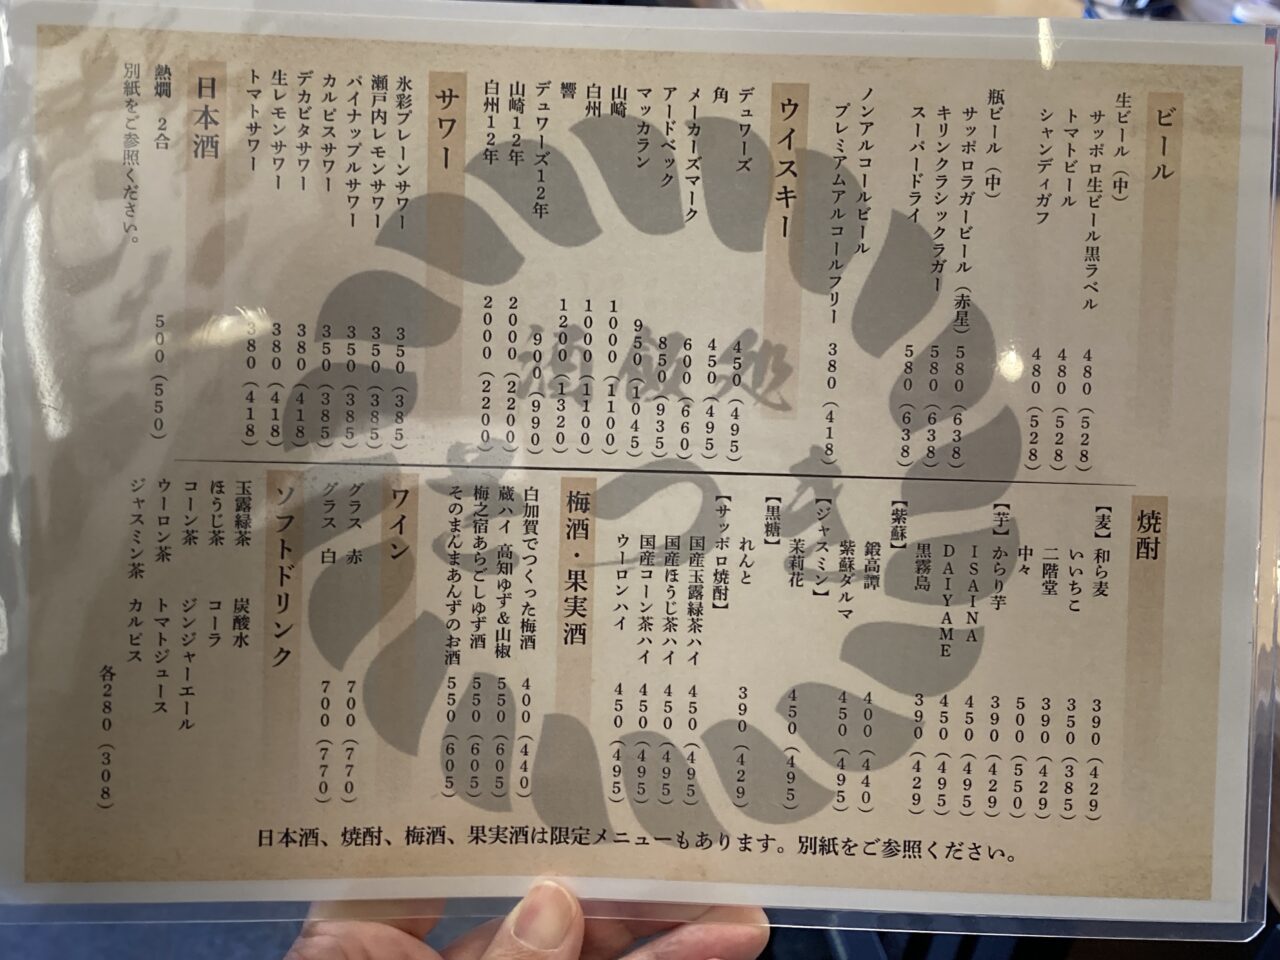 ビール
生ビール（中）
サッポロ生ビール黒ラベル 480（528）
トマトビール 480（528）
シャンディガフ 480（528）
瓶ビール（中）
サッポロラガービール（赤星） 580（638）
キリンクラシックラガー 580（638）
スーパードライ 580（638）
ノンアルコールビール
プレミアムアルコールフリー 380（418）
ウイスキー
デュワーズ 450（495）
角 450（495）
メーカーズマーク 600（660）
アードベック 850（935）
マッカラン 950（1045）
山崎 1000（1100）
白州 1000（1100）
響 1200（1320）
デュワーズ12年 900（990）
山崎12年 2000（2200）
白州12年 2000（2200）
サワー
氷彩プレーンサワー 350（385）
瀬戸内レモンサワー 350（385）
パイナップルサワー 350（385）
カルピスサワー 350（385）
デカビタサワー 380（418）
生レモンサワー 380（418）
トマトサワー 380（418）
日本酒
熱燗 2合 500（550）
別紙をご参照ください。
焼酎
【麦】和ら麦 390（429）
いいちこ 350（385）
二階堂 390（429）
中々 500（550）
【芋】からり芋 390（429）
ISAINA 450（495）
DAIYAME 450（495）
黒霧島 390（429）
【紫蘇】
鍛高譚 400（440）
紫蘇ダルマ 450（495）
【ジャスミン】
茉莉花 450（495）
【黒糖】
れんと 390（429）
【サッポロ焼酎】
国産玉露緑茶ハイ 450（495）
国産ほうじ茶ハイ 450（495）
国産コーン茶ハイ 450（495）
ウーロンハイ 450（495）
梅酒・果実酒
白加賀でつくった梅酒 400（440）
蔵ハイ 高知ゆず＆山椒 550（605）
梅之宿あらごしゆず酒 550（605）
そのまんまあんずのお酒 550（605）
ワイン
グラス 赤 700（770）
グラス 白 700（770）
ソフトドリンク
玉露緑茶 炭酸水
ほうじ茶 コーラ
コーン茶 ジンジャーエール
ウーロン茶 トマトジュース
ジャスミン茶 カルピス
各280（308）
日本酒、焼酎、梅酒、果実酒は限定メニューもあります。別紙をご参照ください。
酒飯処